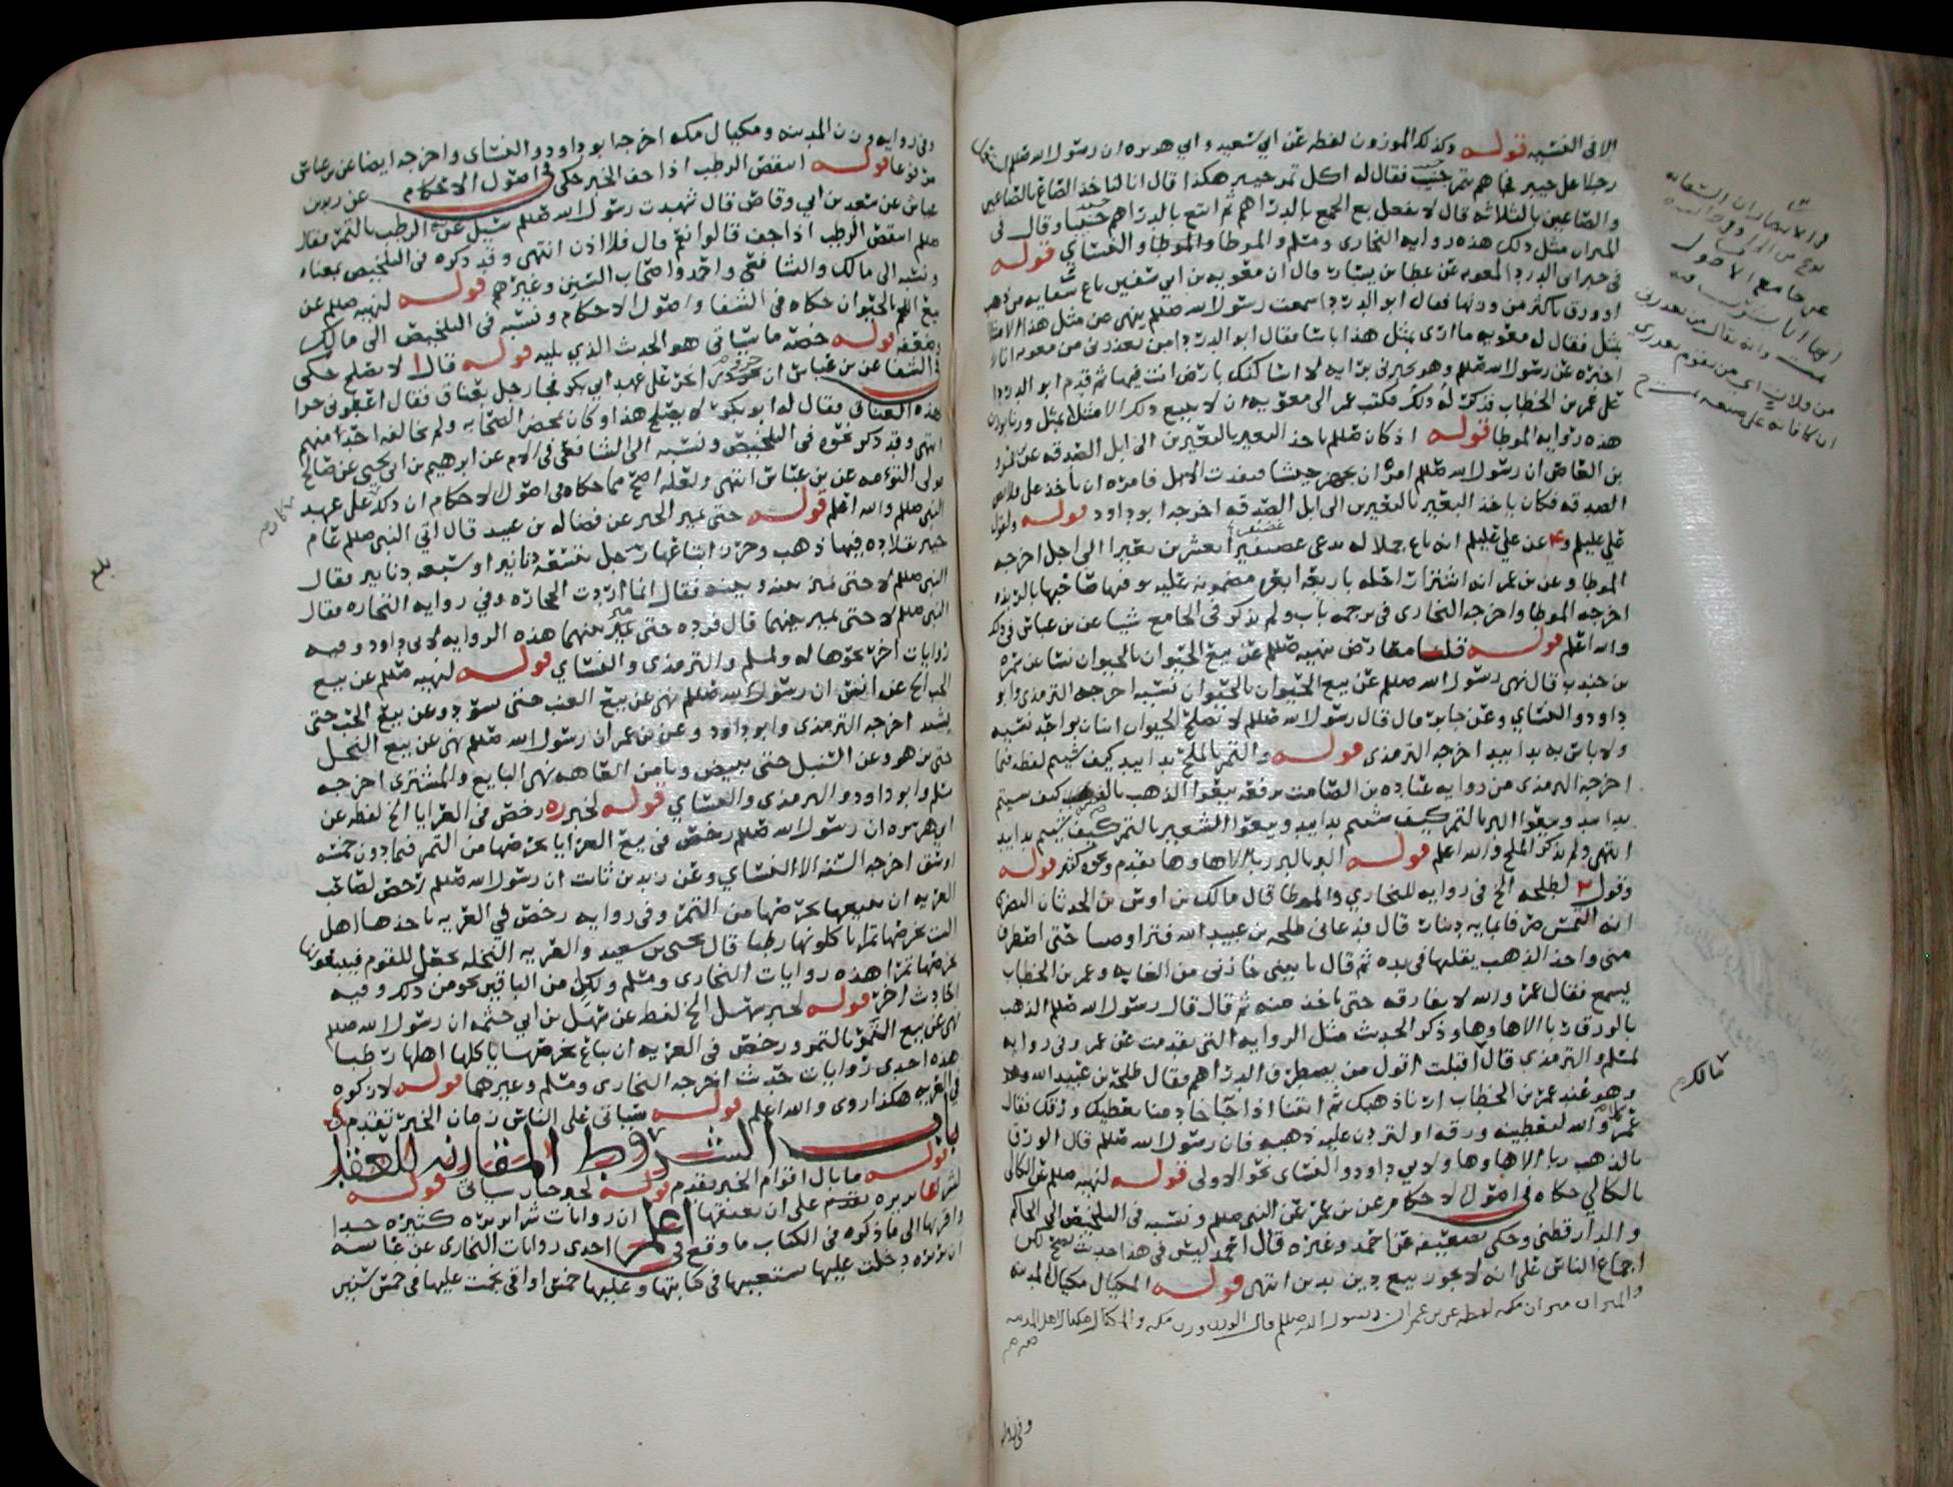 الا في النسيه قوله وكذلك الموزون لفظه عن ابي سعيد وابي هريره ان رسول الله صلعم استعمل
رجلا على خيبر فجاهم بتمر جنيب فقال له اكل تمر خيبر هكذا قال انا لناخذ الصاع بالصاعين
والصاعين بالثلاثه قال لا تفعل بع الجمع بالدراهم ثم ابتع بالدراهم جنيبا وقال في
الميزان مثل ذلك هذه روايه البخاري ومسلم والموطا والنساي قوله
في خبر ابي الدردا لمعويه عن عطا بن يسار قال ان معويه بن ابي سفين باع سقايه من ذهب
او ورق باكثر من وزنها فقال ابو الدردا سمعت رسول الله صلعم ينهى عن مثل هذا الا مثلا
بمثل فقال له معويه ما ارى بمثل هذا باسا فقال ابو الدردا من يعذرني من معويه انا
اخبره عن رسول الله صلعم وهو يخبرني برايه لا اساكنك بارض انت فيها ثم قدم ابو الدردا
على عمر بن الخطاب فذكر له ذلك فكتب عمر الى معويه ان لا يبيع ذلك الا مثلا بمثل وزنا بوزن
هذه روايه الموطا قوله اذ كان صلعم ياخذ البعير بالبعيرين الى ابل الصدقه عن عمرو
بن العاص ان رسول الله صلعم امره ان يجهز جيشا فنفدت الابل فامره ان ياخذ على قلايص
الصدقه فكان ياخذ البعير بالبعيرين الى ابل الصدقه اخرجه ابو داود قوله ولقول
علي عليلم وعن علي عليلم انه باع جملا له يدعى عصيفيرا بعشرين بعيرا الى اجل اخرجه
الموطا وعن بن عمر انه اشترى راحله باربعه ابعره مضمونه عليه يوفيها صاحبها بالربذه
اخرجه الموطا واخرجه البخاري في ترجمه باب ولم يذكر في الجامع شيا عن بن عباس في ذلك
والله اعلم قوله قلنا معارض بنهيه صلعم عن بيع الحيوان بالحيوان نسا عن سمره
بن جندب قال نهى رسول الله صلعم عن بيع الحيوان بالحيوان نسيه اخرجه الترمذي وابو
داود والنساي وعن جابر قال قال رسول الله صلعم لا يصلح الحيوان اثنان بواحد نسيه
ولا باس به يدا بيد اخرجه الترمذي قوله والتمر بالملح يدا بيد كيف شيتم لفظه فيما
اخرجه الترمذي من روايه عباده بن الصامت يرفعه بيعوا الذهب بالفضه كيف شيتم
يدا بيد وبيعوا البر بالتمر كيف شيتم يدا بيد وبيعوا الشعير بالتمر كيف شيتم يدا بيد
انتهى ولم يذكر الملح والله اعلم قوله البر بالبر ربا الا ها وها تقدم ونحوه كثير قوله
وقول لطلحه الخ في روايه للبخاري والموطا قال مالك بن اوس بن الحدثان النصري
انه التمس صرفا بمايه دينار قال فدعاني طلحه بن عبيد الله فتراوضنا حتى اصطرف
مني واخذ الذهب يقلبها في يده ثم قال حتى ياتي خازني من الغابه وعمر بن الخطاب
يسمع فقال عمر والله لا يفارقه حتى ياخذ منه ثم قال قال رسول الله صلعم الذهب
بالورق ربا الا ها وها وذكر الحديث مثل الروايه التي تقدمت عن عمر وفي روايه
لمسلم والترمذي قال اقبلت اقول من يصطرف الدراهم فقال طلحه بن عبيد الله
وهو عند عمر بن الخطاب ارنا ذهبك ثم ايتنا اذا جا خادمنا نعطيك ورقك فقال
عمر كلا والله لتعطينه ورقه او لتردن عليه ذهبه فان رسول الله صلعم قال الورق
بالذهب ربا الا ها وها ولابي داود والنساي نحو الاولى قوله لنهيه صلعم عن الكالي
بالكالي حكاه في اصول الاحكام عن بن عمر عن النبي صلعم ونسبه في التلخيص الى الحاكم
والدارقطني وحكى تضعيفه عن احمد وغيره قال احمد ليس في هذا حديث يصح لكن
اجماع الناس على انه لا يجوز بيع دين بدين انتهى قوله المكيال مكيال المدينه
والميزان ميزان مكه لفظه عن بن عمر ان رسول الله صلعم قال الوزن وزن مكه والمكيال مكيال اهل المدينه
وفي روايه
وفي روايه وزن المدينه ومكيال مكه اخرجه ابو داود والنساي واخرجه ايضا عن بن عباس
مرفوعا قوله اينقص الرطب اذا جف الخبر حكى في اصول الاحكام عن زيد بن
عياش عن سعد بن ابي وقاص قال شهدت رسول الله صلعم سيل عن الرطب بالتمر فقال
صلعم اينقص الرطب اذا جف قالوا نعم قال فلا اذن انتهى وقد ذكره في التلخيص بمعناه
ونسبه الى مالك والشافعي واحمد واصحاب السنن وغيرهم قوله لنهيه صلعم عن
بيع اللحم بالحيوان حكاه في الشفا واصول الاحكام ونسبه في التلخيص الى مالك
وضعفه قوله خصه ما سياتي هو الحديث الذي يليه قوله قال لا يصلح حكى
في الشفا عن بن عباس ان جزورا نحر على عهد ابي بكر فجا رجل بعناق فقال اعطوني جزا
هذه العناق فقال له ابو بكر لا يصلح هذا وكان بمحضر الصحابه ولم يخالفه احد منهم
انتهى وقد ذكر نحوه في التلخيص ونسبه الى الشافعي في الام عن ابرهيم بن ابي يحيى عن صالح
مولى التوامه عن بن عباس انتهى ولعله اصح مما حكاه في اصول الاحكام ان ذلك على عهد
النبي صلعم والله اعلم قوله حتى تميز الخبر عن فضاله بن عبيد قال اتي النبي صلعم عام
خيبر بقلاده فيها ذهب وخرز ابتاعها رجل بتسعه دنانير او سبعه دنانير فقال
النبي صلعم لا حتى تميز بينه وبينه فقال انما اردت الحجاره وفي روايه التجاره فقال
النبي صلعم لا حتى تميز بينهما قال فرده حتى ميز بينهما هذه الروايه لابي داود وفيه
روايات اخر نحوها له ولمسلم والترمذي والنساي قوله لنهيه صلعم عن بيع
الحب الخ عن انس ان رسول الله صلعم نهى عن بيع العنب حتى يسود وعن بيع الحب حتى
يشتد اخرجه الترمذي وابو داود وعن بن عمر ان رسول الله صلعم نهى عن بيع النخل
حتى تزهو وعن السنبل حتى يبيض ويامن العاهه نهى البايع والمشتري اخرجه
مسلم وابو داود والترمذي والنساي قوله لخبر ره رخص في العرايا الخ لفظه عن
ابي هريره ان رسول الله صلعم رخص في بيع العرايا بخرصها من التمر فيما دون خمسه
اوسق اخرجه السته الا النساي وعن زيد بن ثابت ان رسول الله صلعم رخص لصاحب
العريه ان يبيعها بخرصها من التمر وفي روايه رخص في العريه ياخذها اهل
البيت بخرصها تمرا ياكلونها رطبا قال يحيى بن سعيد والعريه النخله تجعل للقوم فيبيعونها
بخرصها تمرا هذه روايات البخاري ومسلم ولكل من الباقين نحو من ذلك وفيه
احاديث اخر قوله لخبر سهل الخ لفظه عن سهل بن ابي حثمه ان رسول الله صلعم
نهى عن بيع الثمر بالتمر ورخص في العريه ان تباع بخرصها ياكلها اهلها رطبا
هذه احدى روايات حديث اخرجه البخاري ومسلم وغيرهما قوله لا زكوه
في العريه هكذا روى والله اعلم قوله سياتي على الناس زمان الخبر تقدم
باب الشروط المقارنه للعقد
قوله ما بال اقوام الخبر تقدم قوله لخبر جابر سياتي قوله
لشراها بريره تقدم على ان تعتقها اعلم ان روايات شرا بريره كثيره جدا
واقربها الى ما ذكره في الكتاب ما وقع في احدى روايات البخاري عن عايشه
ان بريره دخلت عليها تستعينها في كتابتها وعليها خمس اواقي نجمت عليها في خمس سنين